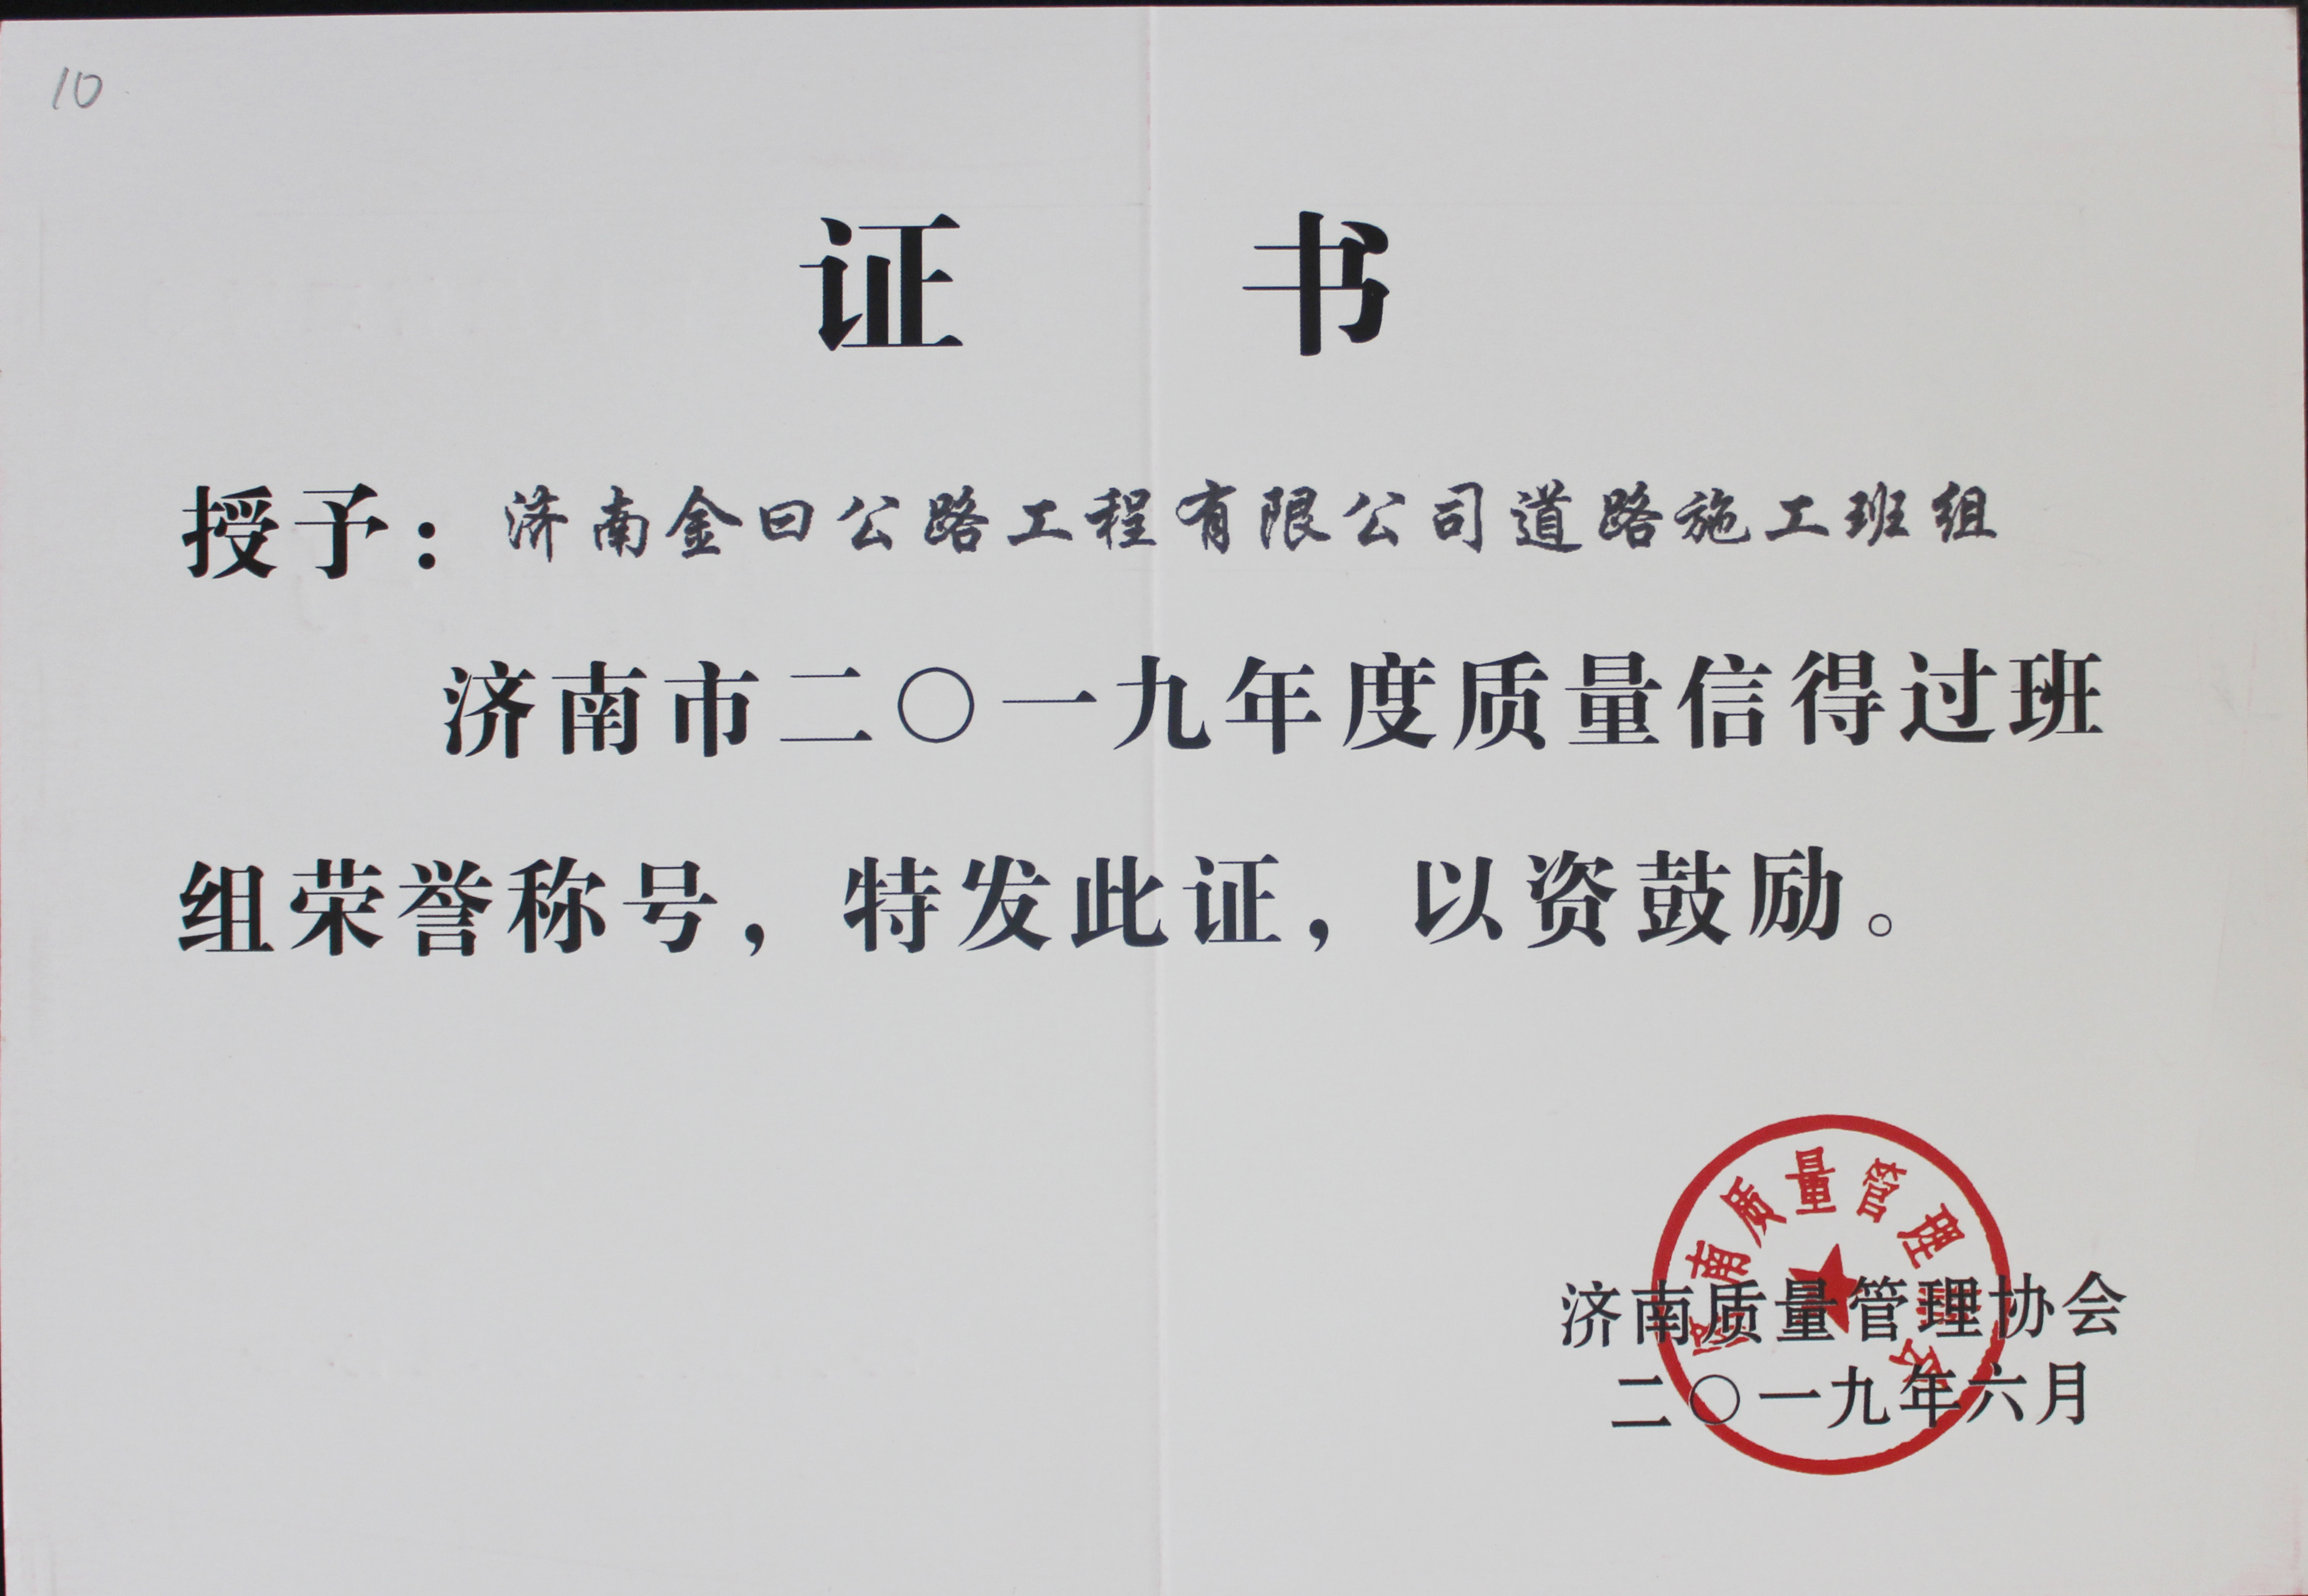 10
证 书
授予：济南金曰公路工程有限公司道路施工班组
济南市二〇一九年度质量信得过班
组荣誉称号，特发此证，以资鼓励。
南质量管理
济南质量管理协会
二〇一九年六月